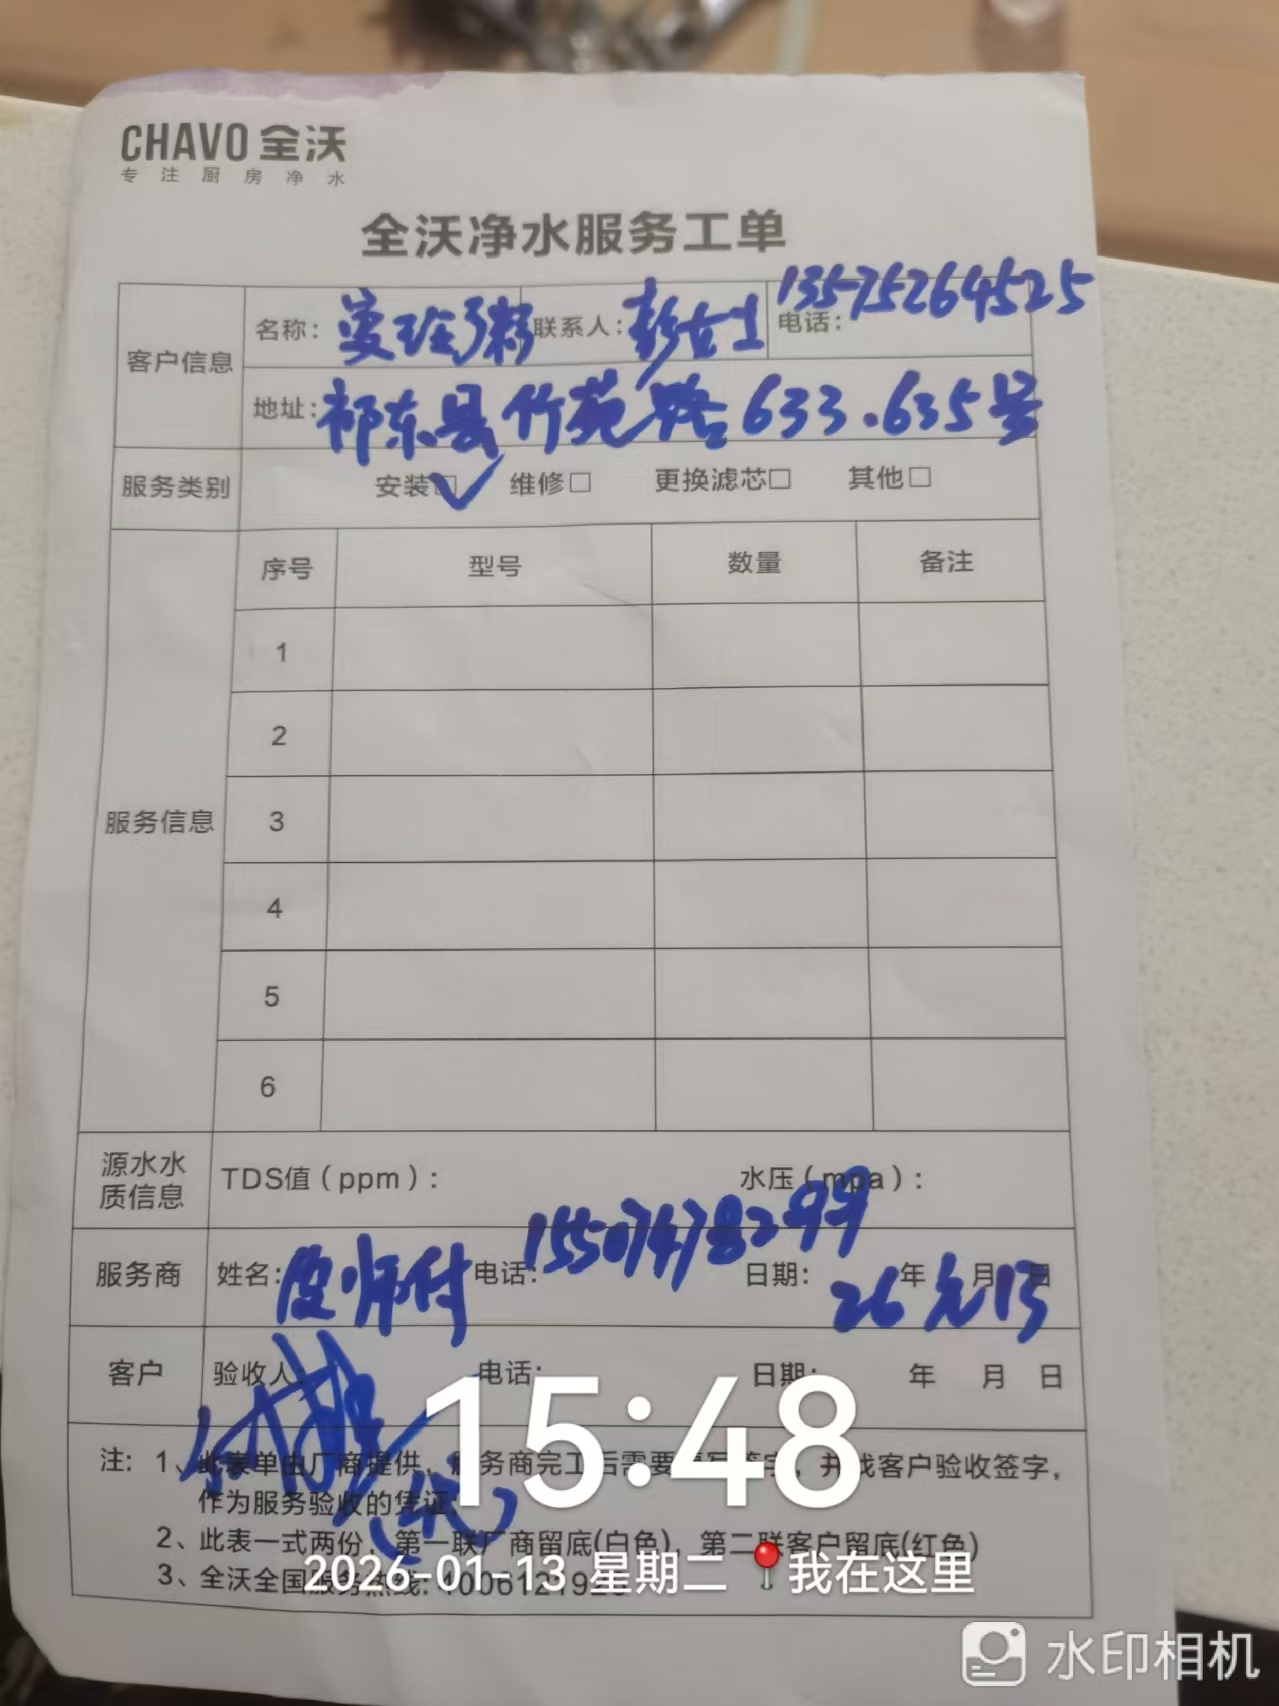 CHAVO 全沃
专注厨房净水
全沃净水服务工单
客户信息 名称: 联系人: 彭女士 电话: 13575264525
地址: 祁东县竹苑路633.635号
服务类别 安装☑ 维修□ 更换滤芯□ 其他□
服务信息 序号 型号 数量 备注
1
2
3
4
5
6
源水水质信息 TDS值(ppm): 水压(mpa):
服务商 姓名: 师付 电话: 15507478299 日期: 26年元月13日
客户 验收人 电话: 日期: 年 月 日
注: 1、此表单由厂商提供, 服务商完工后需要填写签字, 并找客户验收签字,
作为服务验收的凭证;
(代)
2、此表一式两份, 第一联厂商留底(白色), 第二联客户留底(红色)
3、全沃全国服务热线:
15:48
2026-01-13 星期二 📍我在这里
水印相机